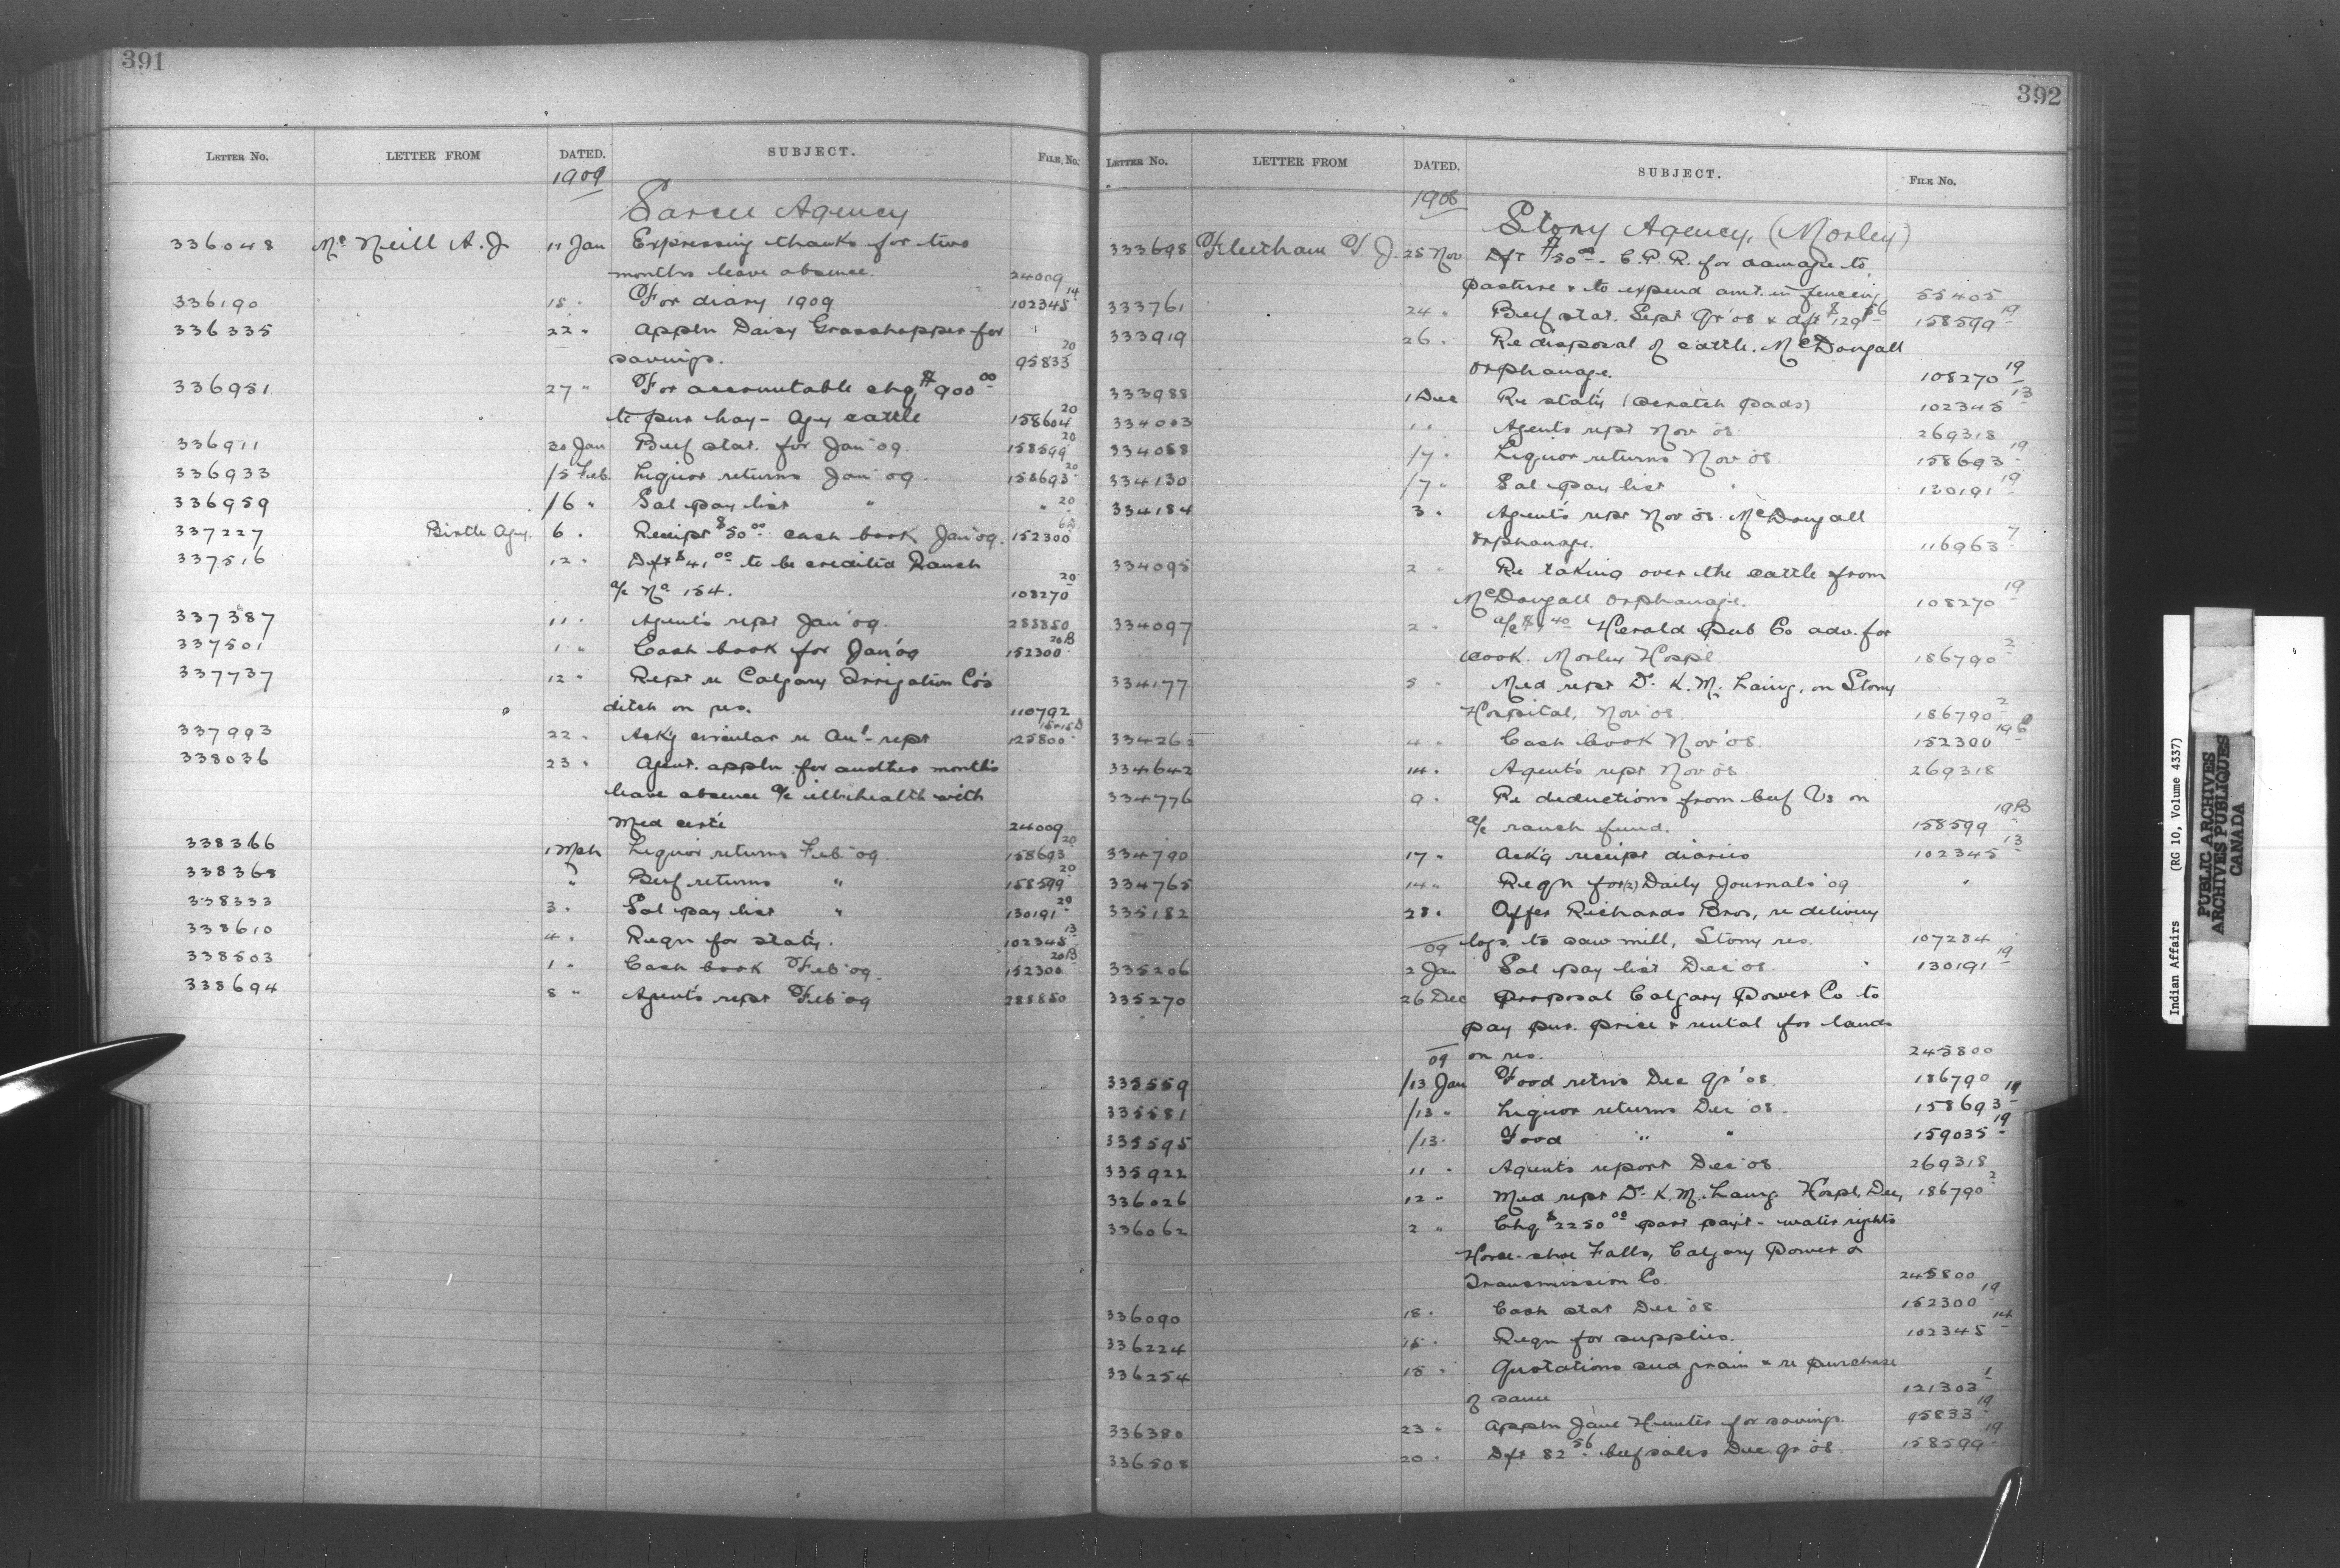 391
LETTER No. LETTER FROM DATED. SUBJECT. FILE, No.
1909
Sarcee Agency
336048 McNeill A. J. 11 Jan Expressing thanks for two
months leave absence. 24009
336190 18 " For diary 1909 102345 14
336335 22 " Appln Daisy Grasshopper for
savings. 95833 20
336951 27 " For accountable chq $900 00
to pur hay - Agcy cattle 158604 20
336911 30 Jan Beef stat. for Jan '09. 158599 20
336933 /5 Feb Liquor returns Jan '09. 158693 20
336959 /6 " Sal pay list " " 20
337227 Birtle Agcy. 6 " Receipt $50 00 cash book Jan '09. 152300 6A
337516 12 " Dft $41 00 to be credited Ranch
a/c No 154. 108270 20
337387 11 " Agent's rept Jan '09. 288850
337501 1 " Cash book for Jan '09 152300 20B
337737 12 " Rept re Calgary Irrigation Co's
ditch on res. 110792
337993 22 " Ack'g circular re Anl- rept 125800
338036 23 " Agent. appln for another month's
leave absence a/c ill-health with
Med cert. 24009
338366 1 Mch Liquor returns Feb '09. 158693 20
338368 " Beef returns " 158599 20
338333 3 " Sal pay list " 130191 20
338610 4 " Reqn for stat'y. 102345 13
338503 1 " Cash book Feb '09. 152300 20B
338694 8 " Agent's rept Feb '09 288850
392
LETTER No. LETTER FROM DATED. SUBJECT. FILE No.
1908
Stony Agency, (Morley)
333698 Fleetham T. J. 25 Nov Dft $50 00 - C.P.R. for damage to
pasture & to expend amt. in fencing 55405
333761 24 " Beef stat. Sept Qr '08 & dft $129 56 158599 19
333919 26 " Re disposal of cattle. McDougall
Orphanage. 108270 19
333988 1 Dec Re stat'y (scratch pads) 102345 13
334003 1 " Agents rept Nov '08 269318
334088 /7 " Liquor returns Nov '08 158693 19
334130 /7 " Sal pay list " 130191 19
334184 3 " Agent's rept Nov '08. McDougall
Orphanage. 116963 7
334095 2 " Re taking over the cattle from
McDougall Orphanage. 108270 19
334097 2 " a/c Herald Pub Co adv. for
cook. Morley Hospl 186790 2
334177 5 " Med rept Dr. K. M. Laing, on Stony
Hospital, Nov '08. 186790 2
334262 4 " Cash book Nov '08. 152300
334642 14 " Agent's rept Nov '08 269318
334776 9 " Re deductions from beef Vs on
a/c ranch fund. 158599 19B
334790 17 " Ack'g receipt diaries 102345 13
334765 14 " Reqn for (2) Daily Journals '09 "
335182 28 " Offer Richards Bros, re delivery
logs to saw mill, Stony res. 107284
09
335206 2 Jan Sal pay list Dec '08. 130191 19
335270 26 Dec Proposal Calgary Power Co to
pay pur. price & rental for lands
on res. 245800
09
335559 /13 Jan Food retns Dec Qr '08. 186790
335581 /13 " Liquor returns Dec '08. 158693 19
335595 /13 " Food " " 159035 19
335922 11 " Agents report Dec '08. 269318
336026 12 " Med rept Dr. K. M. Laing. Hospl, Dec, 186790 2
336062 2 " Chq $2250 00 part pay't - water rights
Horse-shoe Falls, Calgary Power &
Transmission Co. 245800
336090 18 " Cash stat Dec '08. 152300 19
336224 18 " Reqn for supplies. 102345 14
336254 18 " Quotations seed grain & re purchase
of same 121303 1
336380 23 " Appln Jane Hunter for savings. 95833 19
336508 20 " Dft 82 56 beef sales Dec. qr '08. 158599 19
Indian Affairs (RG 10, Volume 4337)
PUBLIC ARCHIVES
ARCHIVES PUBLIQUES
CANADA